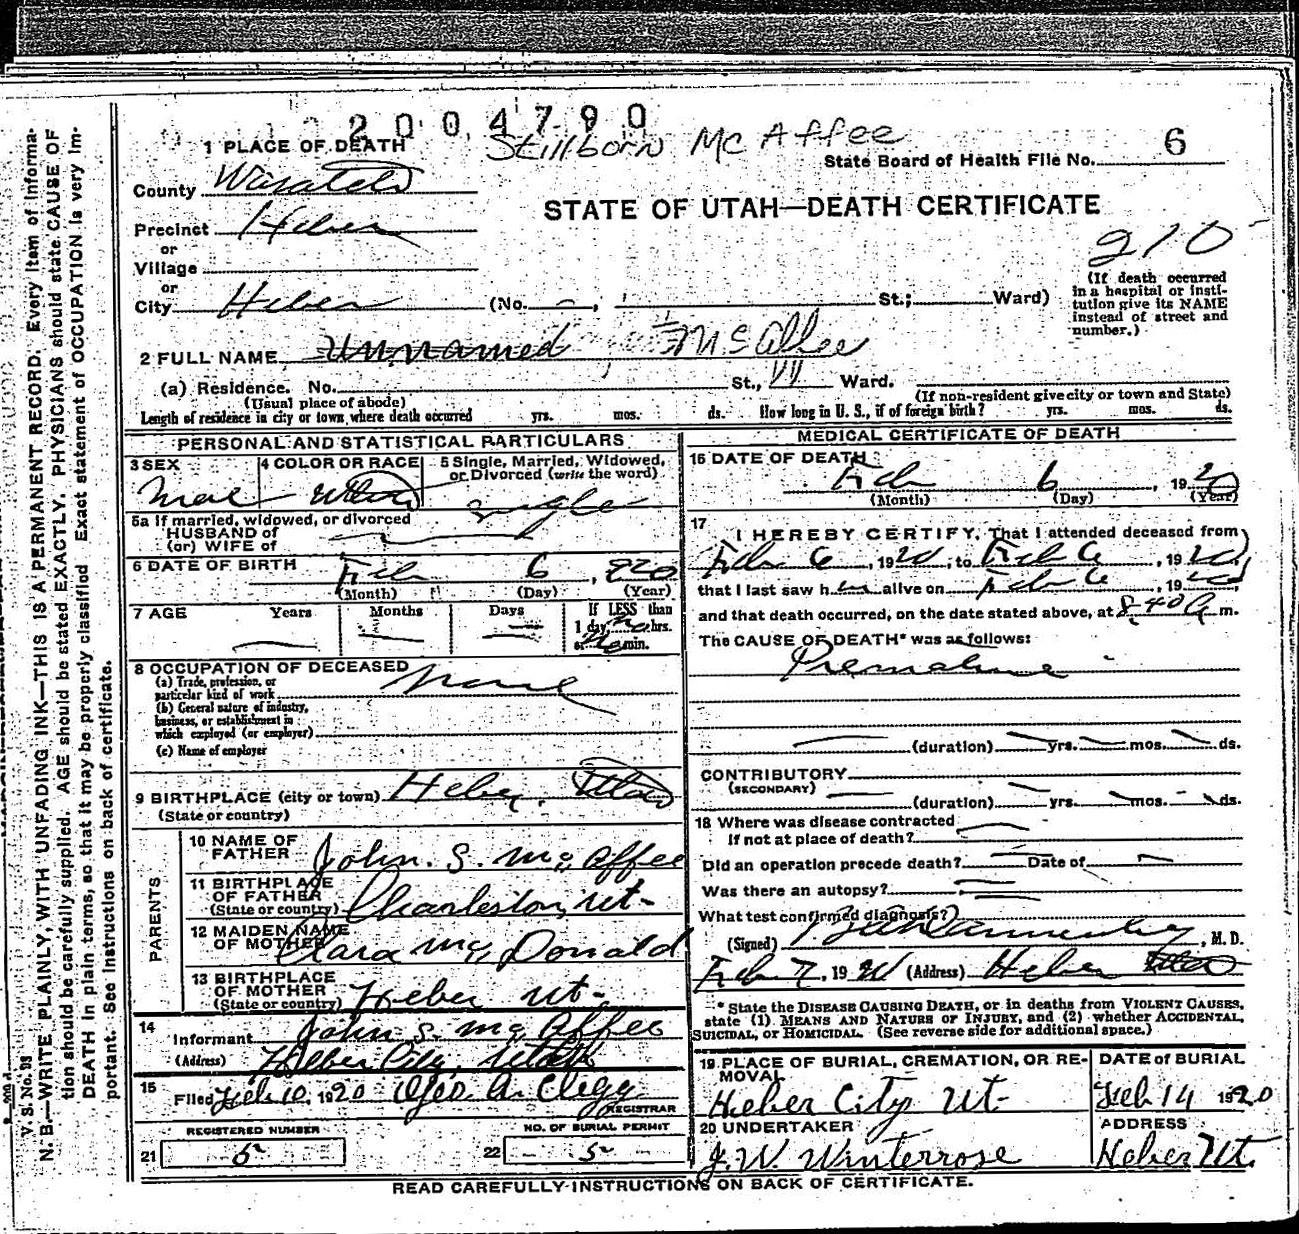 2004790
Stillborn McAffee
1 PLACE OF DEATH
State Board of Health File No. 6
County Wasatch
STATE OF UTAH—DEATH CERTIFICATE
Precinct Heber
or
Village
or
City Heber (No. - , St.; Ward)
210
(If death occurred
in a hospital or insti-
tution give its NAME
instead of street and
number.)
2 FULL NAME Unnamed McAffee
(a) Residence. No. St., Ward.
(Usual place of abode) (If non-resident give city or town and State)
Length of residence in city or town where death occurred yrs. mos. ds. How long in U. S., if of foreign birth? yrs. mos. ds.
PERSONAL AND STATISTICAL PARTICULARS
3 SEX 4 COLOR OR RACE 5 Single, Married, Widowed,
or Divorced (write the word)
Male White Single
5a If married, widowed, or divorced
HUSBAND of
(or) WIFE of
6 DATE OF BIRTH Feb 6, 920
(Month) (Day) (Year)
7 AGE Years Months Days If LESS than
1 day, no hrs.
or no min.
8 OCCUPATION OF DECEASED none
(a) Trade, profession, or
particular kind of work
(b) General nature of industry,
business, or establishment in
which employed (or employer)
(c) Name of employer
9 BIRTHPLACE (city or town) Heber. Utah
(State or country)
PARENTS
10 NAME OF
FATHER John. S. McAffee
11 BIRTHPLACE
OF FATHER
(State or country) Charleston, Ut-
12 MAIDEN NAME
OF MOTHER Clara McDonald
13 BIRTHPLACE
OF MOTHER
(State or country) Heber Ut-
14
Informant John S. McAffee
(Address) Heber City, Utah
15
Filed Feb 10, 1920 Geo. A. Clegg
REGISTRAR
REGISTERED NUMBER NO. OF BURIAL PERMIT
21 5 22 5
MEDICAL CERTIFICATE OF DEATH
16 DATE OF DEATH
Feb 6, 1920
(Month) (Day) (Year)
17
I HEREBY CERTIFY, That I attended deceased from
Feb 6, 1920, to Feb 6, 1920,
that I last saw h im alive on Feb 6, 1920,
and that death occurred, on the date stated above, at 8.40 A m.
The CAUSE OF DEATH* was as follows:
Premature
(duration) yrs. mos. ds.
CONTRIBUTORY
(SECONDARY)
(duration) yrs. mos. ds.
18 Where was disease contracted
If not at place of death?
Did an operation precede death? Date of
Was there an autopsy?
What test confirmed diagnosis?
(Signed) , M. D.
Feb 7, 1920 (Address) Heber Utah
* State the DISEASE CAUSING DEATH, or in deaths from VIOLENT CAUSES,
state (1) MEANS AND NATURE OF INJURY, and (2) whether ACCIDENTAL,
SUICIDAL, or HOMICIDAL. (See reverse side for additional space.)
19 PLACE OF BURIAL, CREMATION, OR RE-
MOVAL
DATE of BURIAL
Heber City Ut- Feb 14 1920
20 UNDERTAKER ADDRESS
J. W. Winterrose Heber Ut.
READ CAREFULLY INSTRUCTIONS ON BACK OF CERTIFICATE.
V. S. No. 93
N. B.—WRITE PLAINLY, WITH UNFADING INK—THIS IS A PERMANENT RECORD. Every item of informa-
tion should be carefully supplied. AGE should be stated EXACTLY. PHYSICIANS should state CAUSE OF
DEATH in plain terms, so that it may be properly classified. Exact statement of OCCUPATION is very im-
portant. See instructions on back of certificate.